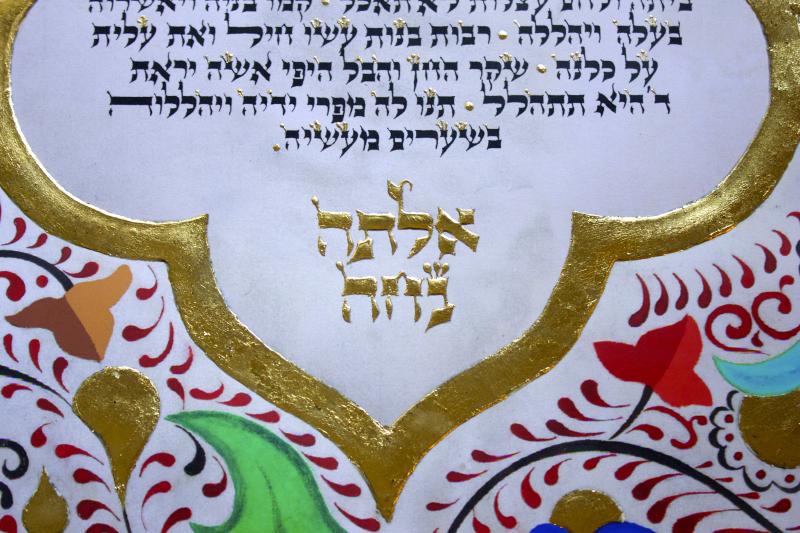 ביתה ולחם עצלות לא תאכל · קמו בניה ויאשרוה
בעלה ויהללה · רבות בנות עשו חיל ואת עלית
על כלנה · שקר החן והבל היפי אשה יראת
ד' היא תתהלל · תנו לה מפרי ידיה ויהללוה
בשערים מעשיה.
אלתה
נחה